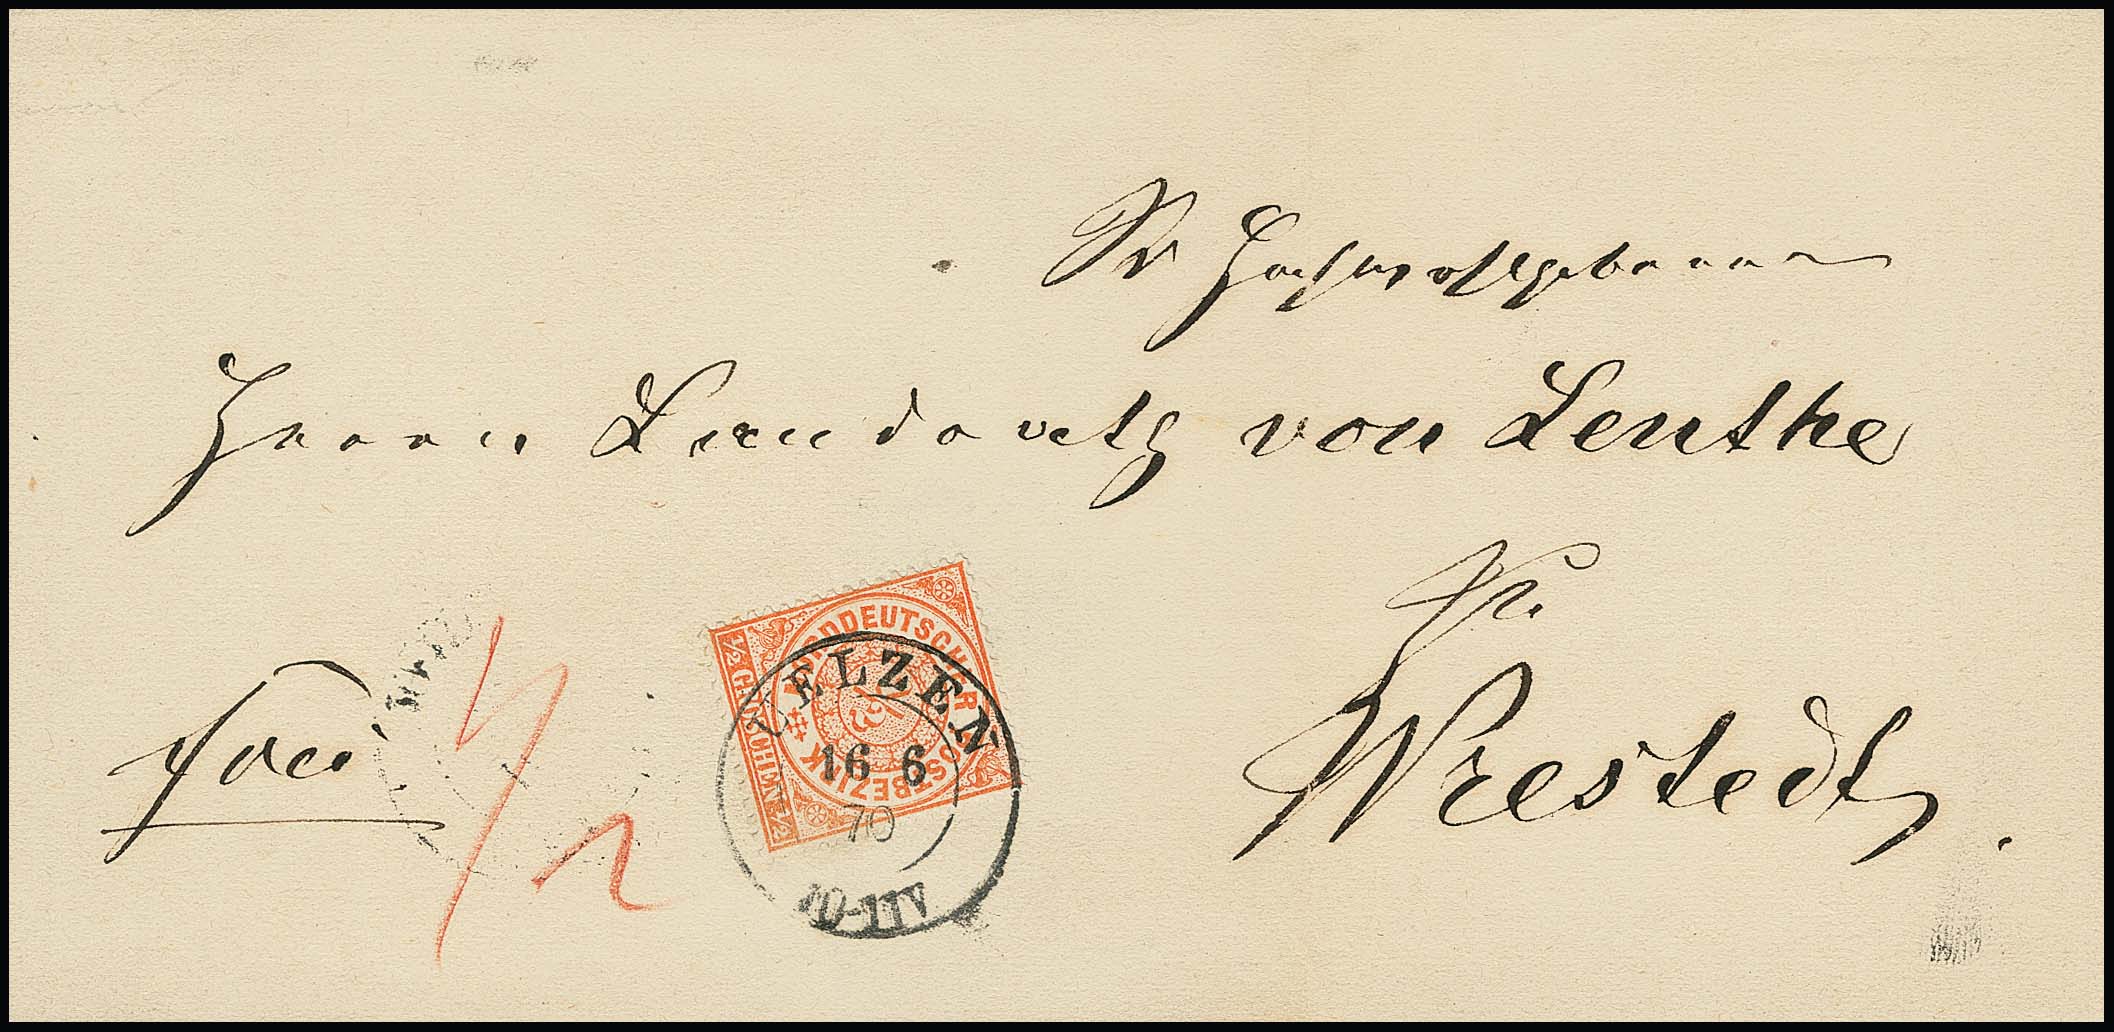 Sr Hochwohlgeboren
Herrn Landrath von Lenthe
zu
Wrestedt.
frei
1/2
NORDDEUTSCHER POSTBEZIRK
1/2 GROSCHEN 1/2
1/2
UELZEN
16 6
70
10-11 V